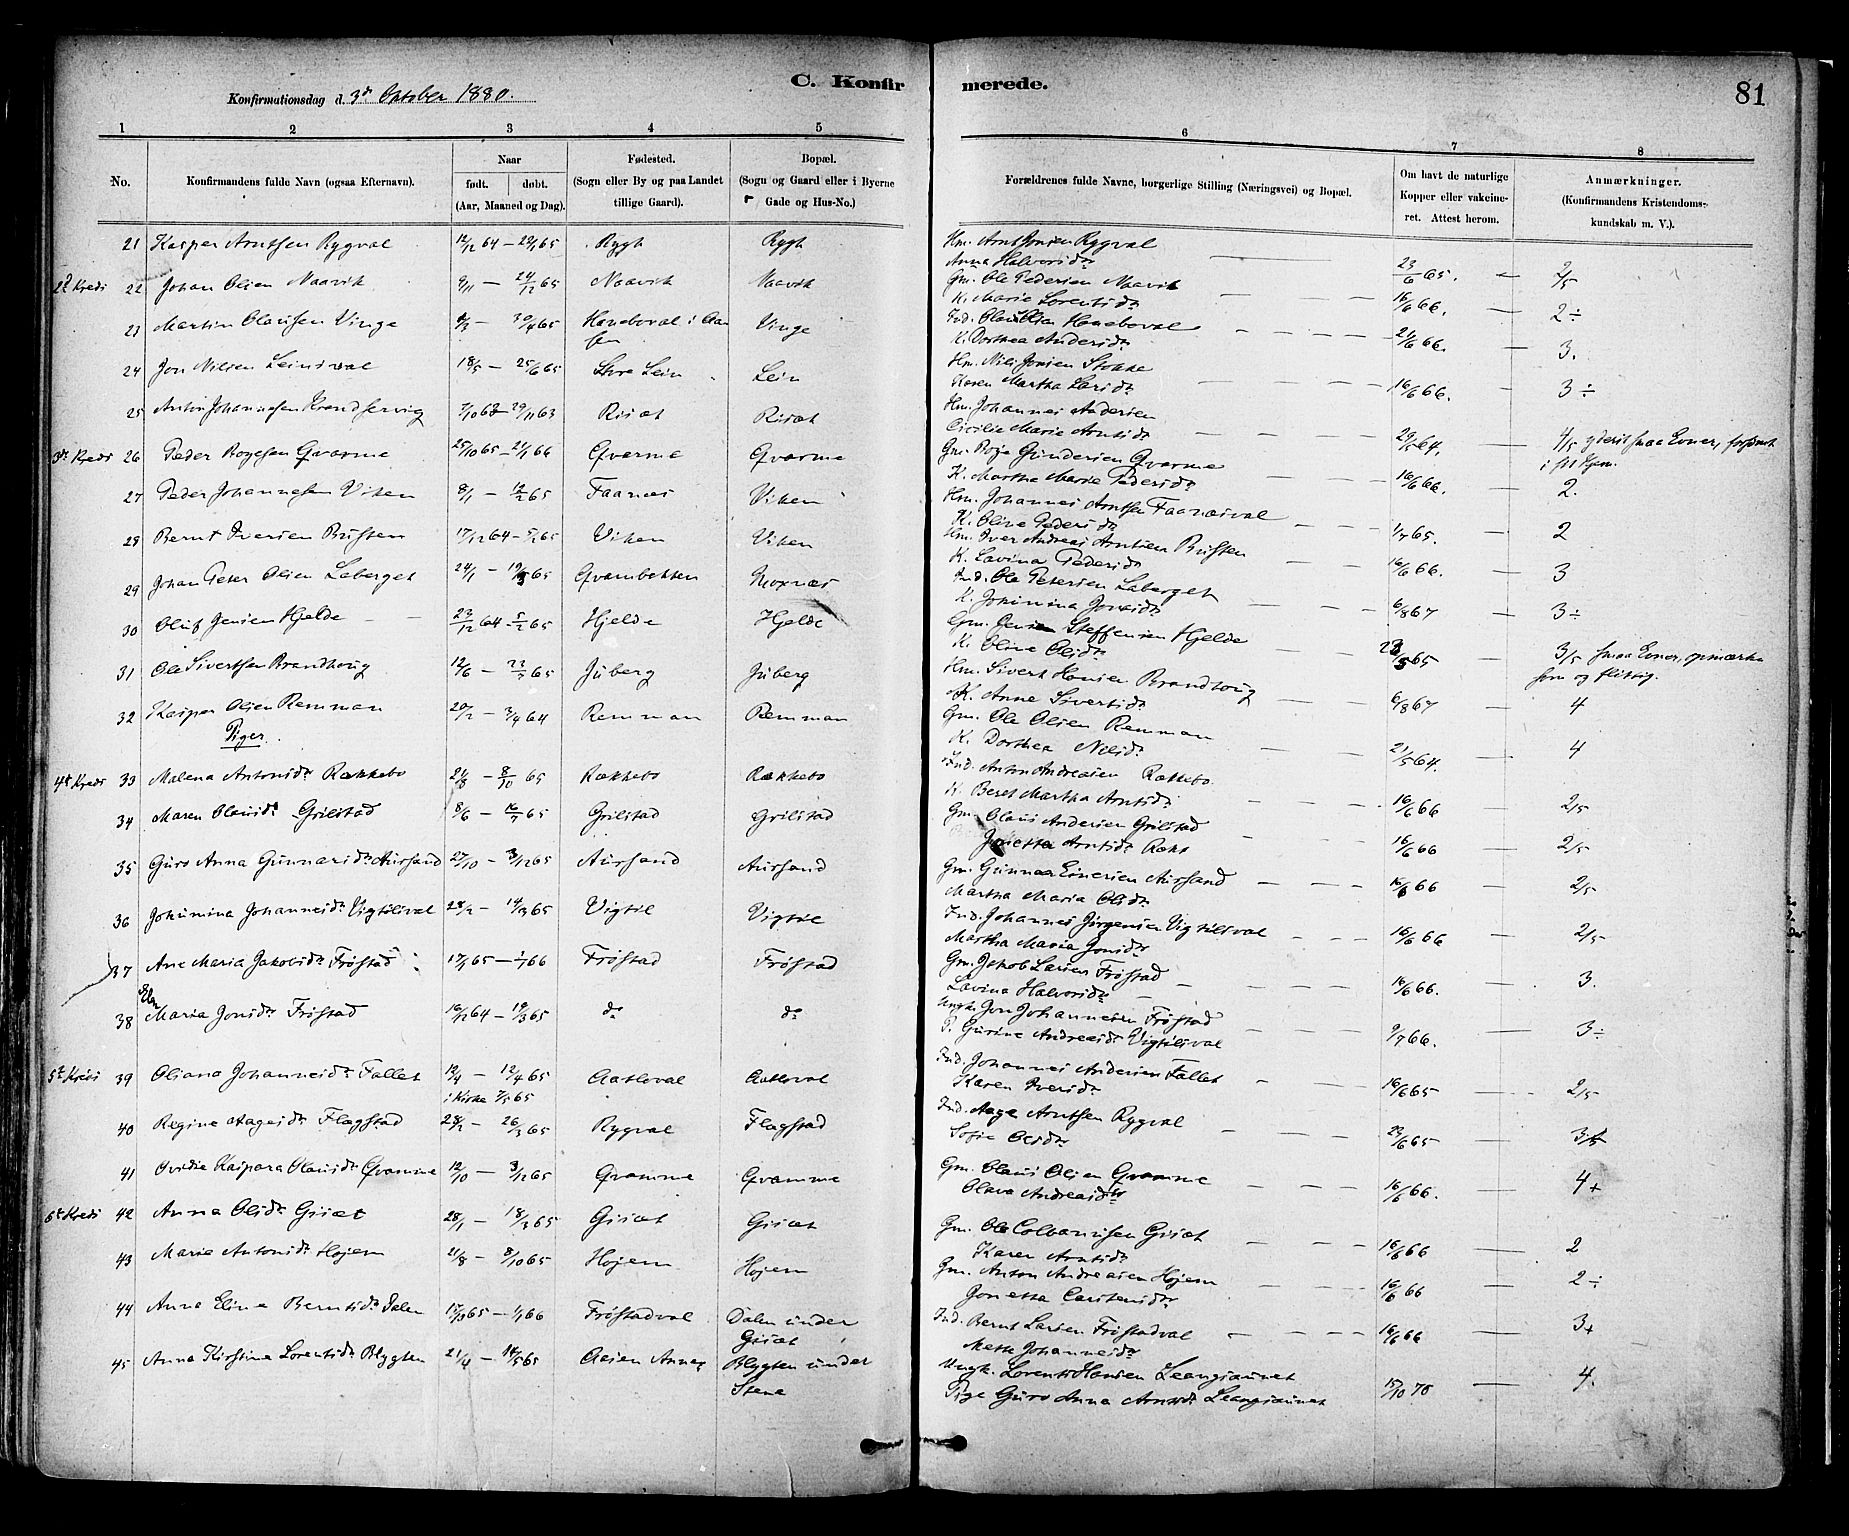 C. Konfirmerede.
81
Konfirmationsdag d. 3de Oktober 1880.
1 2 3 4 5 6 7 8
No. Konfirmandens fulde Navn (ogsaa Efternavn). Naar født. døbt. (Aar, Maaned og Dag). Fødested. (Sogn eller By og paa Landet tillige Gaard). Bopæl. (Sogn og Gaard eller i Byerne Gade og Hus-No.) Forældrenes fulde Navne, borgerlige Stilling (Næringsvei) og Bopæl. Om havt de naturlige Kopper eller vakcineret. Attest herom. Anmærkninger. (Konfirmandens Kristendomskundskab m. V.).
21 Kasper Arntsen Rygval 12/12 64 – 29/1 65 Rygh Rygh Hm. Arnt Jonsen Rygval
Anna Halvorsdr 23/6 65. 2/5
2d Kreds 22 Johan Olsen Naavik 9/11 – 24/12 65 Naavik Naavik Gm. Ole Pedersen Naavik
K. Marie Lorentsdr 16/6 66. 2 ÷
23 Martin Olausen Vinge – 30/4 65 Haneboval i Aasen Vinge Ind. Olaus Olsen Haneboval
K. Dorthea Andersdr 21/6 66. 3.
24 Jon Nilsen Leinsval 18/5 – 25/6 65 Store Lein Lein Hm. Nils Jonsen Stokke
Karen Martha Larsdr 16/6 66. 3 ÷
25 Anton Johannesen 7/10 63 – 29/11 63 Risæt Risæt Hm. Johannes Andersen
Cicilie Marie Arntsdr 4/5 yderst smaa Evner,
3de Kreds 26 Peder Rogesen Qvarme 25/10 65 – 21/1 66 Qvarme Qvarme Gm. Roge Gundersen Qvarme
K. Martha Marie Pedersdr 16/6 66. 2.
27 Peder Johannesen Viken 8/1 – 12/2 65 Faanes Viken Hm. Johannes Arntsen Faanæsval
K. Oline Pedersdr 1/7 65. 2
28 Bernt Iversen Busten 17/12 64 – 5/2 65 Viken Viken Hm. Iver Andreas Arntsen Busten
K. Lavina Pedersdr 16/6 66. 3
29 Johan Peter Olsen Laberget 24/1 – 19/3 65 Qvambekken Moxnæs Ind. Ole Petersen Laberget
K. Johimina Jonasdr 6/8 67 3 ÷
30 Oluf Jensen Hjelde 23/12 64 – 5/2 65 Hjelde Hjelde Gm. Jens Steffensen Hjelde
K. Oline Olsdr 3/5 Smaa Evner, opmærksom og flittig.
31 Ole Sivertsen Brandhoug 12/6 – 23/7 65 Juberg Juberg Hm. Sivert Hansen Brandhoug
K. Anne Sivertsdr 6/8 67 4
32 Kasper Olsen Remman 20/2 – 3/4 64 Remman Remman Gm. Ole Olsen Remman
K. Dorthea Nilsdr 21/5 64. 4
Piger.
4de Kreds 33 Malena Antonsdr Rækkebo 21/8 – 8/10 65 Rækkebo Rækkebo Ind. Anton Andreasen Rækkebo.
K. Beret Martha Arntsdr 16/6 66 2/5
34 Maren Olausdr Grilstad 8/6 – 16/7 65 Grilstad Grilstad Gm. Olaus Andersen Grilstad
Jonetta Arntsdr 16/6 66 2/5
35 Guro Anna Gunnarsdr Aursand 27/10 – 3/12 65 Aursand Aursand Gm. Gunnar Einersen Aursand
Martha Maria Olsdr 16/6 66 2/5
36 Johimina Johannesdr Vigtilsval 28/2 – 19/3 65 Vigtil Vigtil Ind. Johannes Jørgensen Vigtilsval
Martha Maria Jonsdr 16/6 66 2/5
37 Ane Maria Jakobsdr Frøstad Frøstad Frøstad Gm. Jakob Larsen Frøstad
Lavina Halvorsdr 16/6 66. 3.
38 Maria Jonsdr Frøstad 16/12 64 – 19/3 65 do do Ungk. Jon Johannesen Frøstad
P. Gurine Andreasdr Vigtilsval 9/7 66. 3 ÷
5te Kreds 39 Oliana Johannesdr Fallet 12/4 – 12/4 65 Aatloval Aatloval Ind. Johannes Andersen Fallet
i Kirke 7/5 65 Karen Iversdr 16/6 65 2/5
40 Regine Aagesdr Flagstad 24/2 – 26/3 65 Rygval Flagstad Ind. Aage Arntsen Rygval
Sofie Olsdr 23/6 65
41 Ovidie Kaspara Olausdr Qvamme 12/10 – 3/12 65 Qvamme Qvamme Gm. Olaus Olsen Qvamme
Olava Andreasdtr 16/6 66. 4+
6te Kreds 42 Anna Olsdr Gisæt 28/1 – 18/3 65 Gisæt Gisæt Gm. Ole Colbanusen Gisæt
Karen Arntsdr 16/6 66 2
43 Marie Antonsdr Højem 21/8 – 8/10 65 Højem Højem Gm. Anton Andreasen Højem
Jonetta Carstensdtr 16/6 66 2 ÷
44 Anna Elina Berntsdr Dalen 17/9 65 – 1/1 66 Frøstadval Dalen under Gisæt Ind. Bernt Larsen Frøstadval
Mette Johannesdr 16/6 66 3+
45 Anna Kirstine Lorentsdr Blygten 21/4 – 14/5 65 Blygten under Stene Ungk. Lorents Hansen Leangsaunet
Pige Guro Anna Arntsdr Leangsaunet 15/10 70 4.